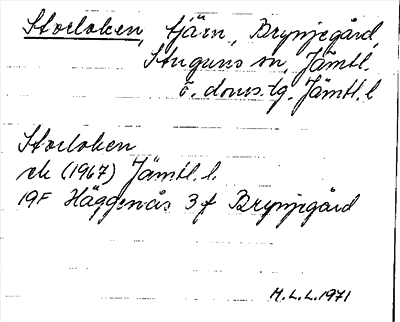 Storloken, tjärn, Brynjegård,
Stuguns sn, Jämtl.
ö. doms.tg. Jämtl. l
Storloken
ek (1967) Jämtl. l.
19F Häggenås 3f Brynjegård
M.L.L. 1971